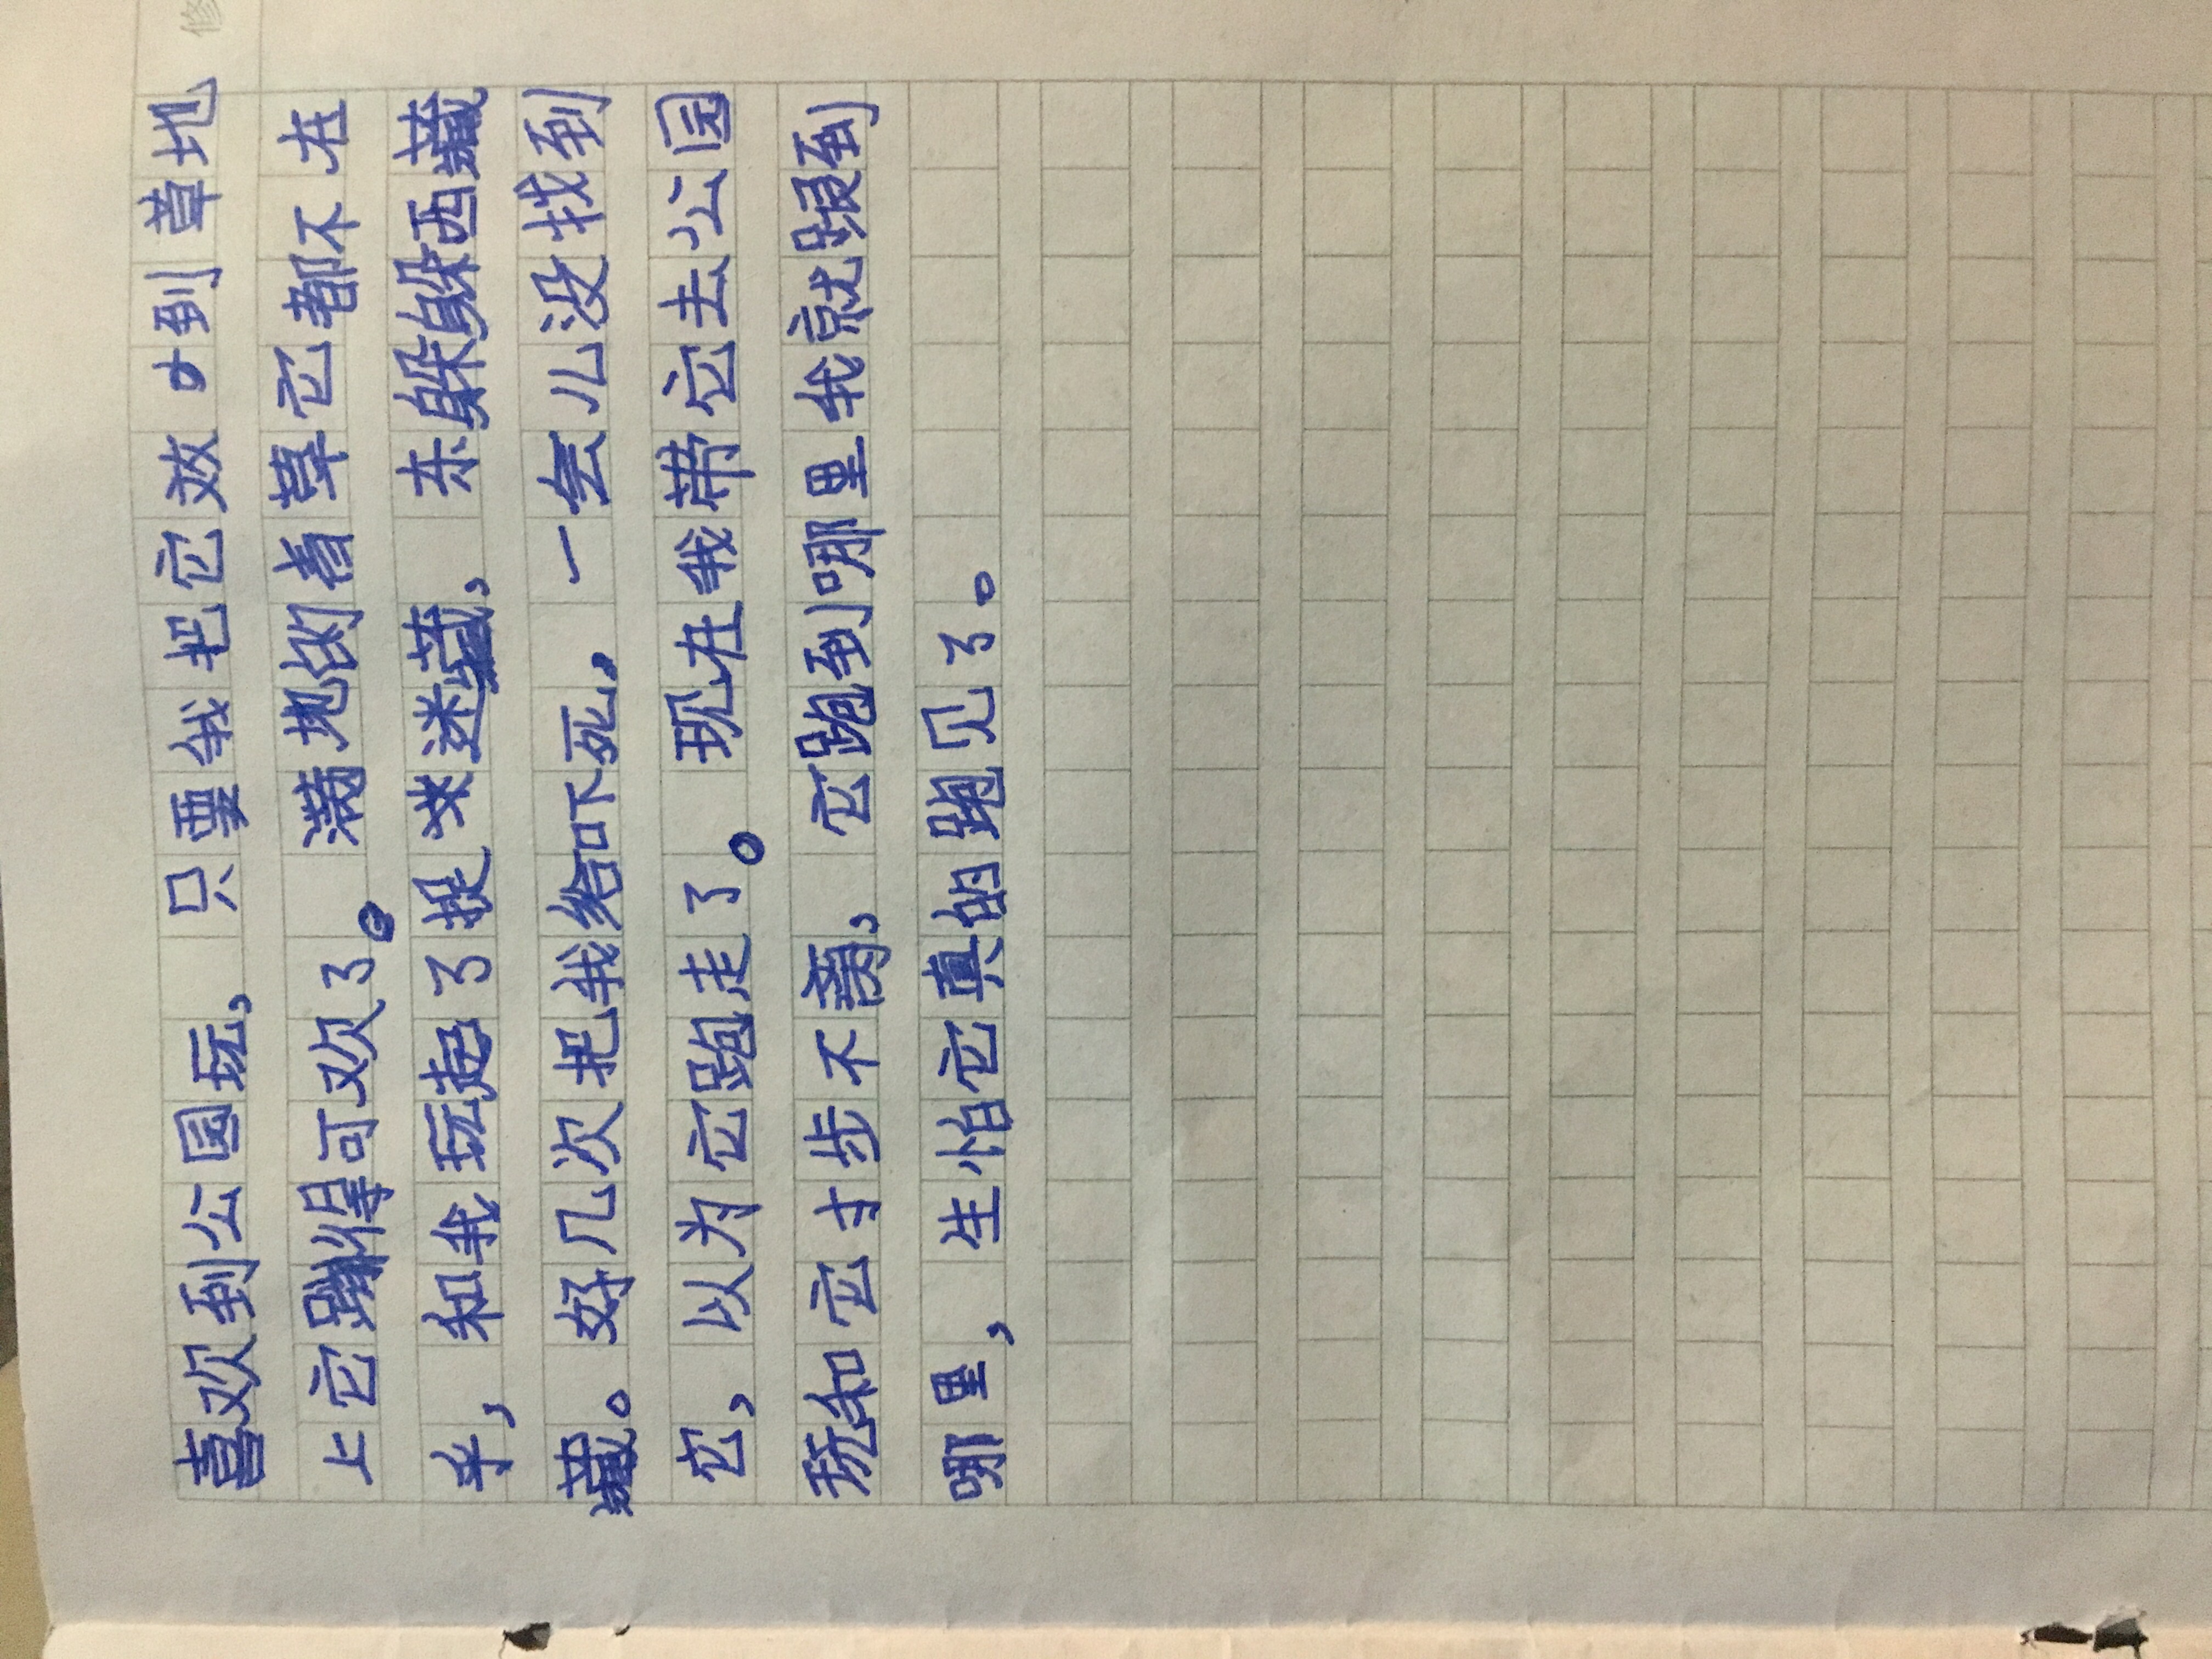 修
喜欢到公园玩，只要我把它效才到草地
上它蹦得可欢了。满地的青草它都不在
乎，和我玩起了捉求迷藏，东躲躲西藏
藏。好几次把我给吓死，一会儿没找到
它，以为它跑走了。现在我带它去公园
玩和它寸步不离，它跑到哪里我就跟到
哪里，生怕它真的跑见了。